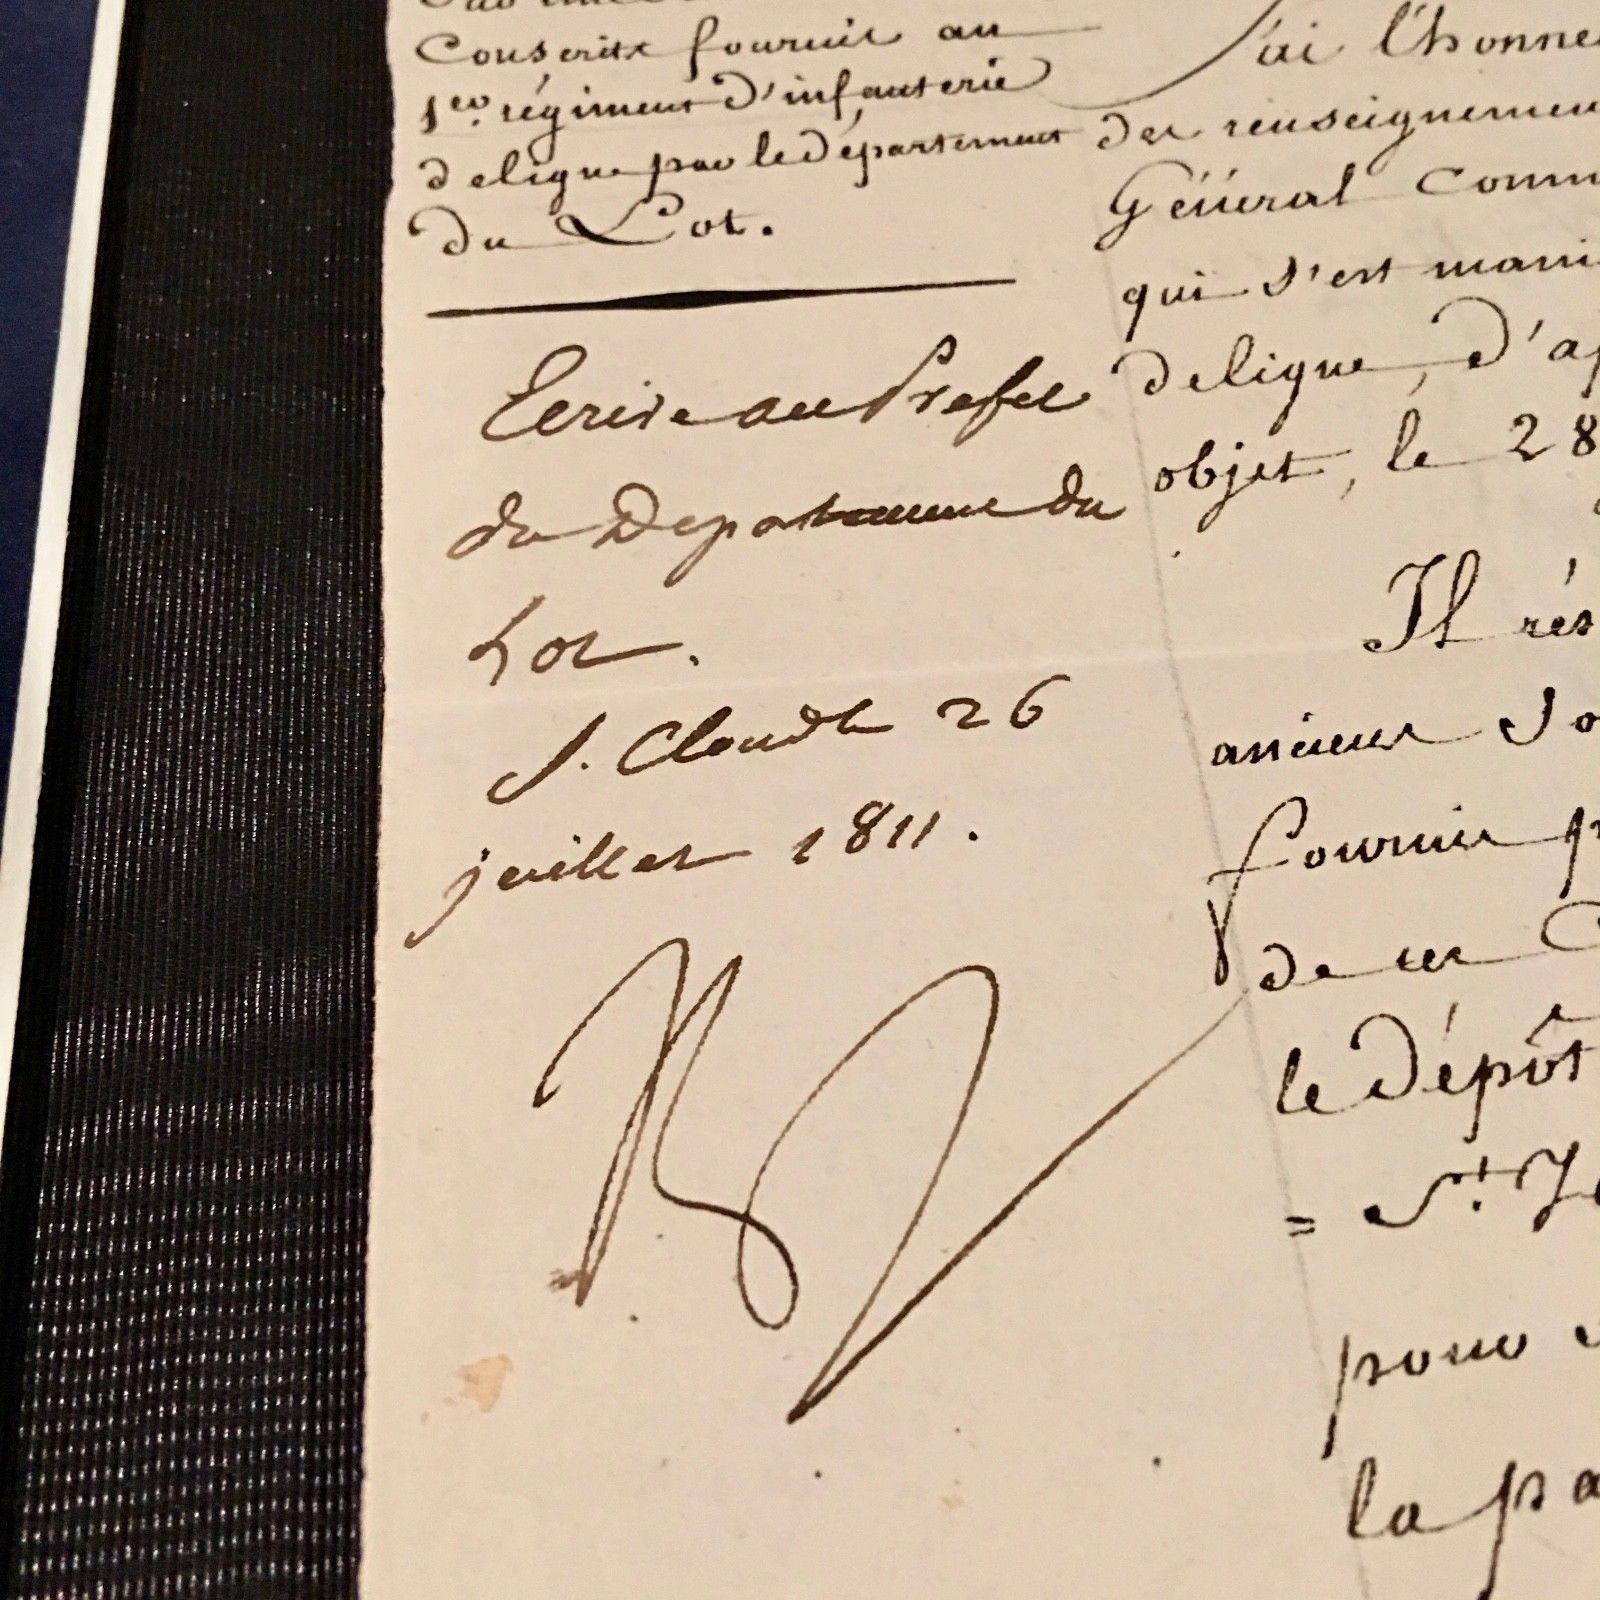 Conscrits fournis au
1er. régiment d'infanterie
de ligne par le Département
du Lot.
Ecrire au Prefet
du Departement du
Lot.
S. Cloud le 26
juillet 1811.
J'ai l'honne
des renseignemen
Général Comm
qui s'est mani
de ligne, d'ap
objet, le 28
Il rés
anciens So
fournis p
de ces C
le Dépôt
= St. J
pour
la pa